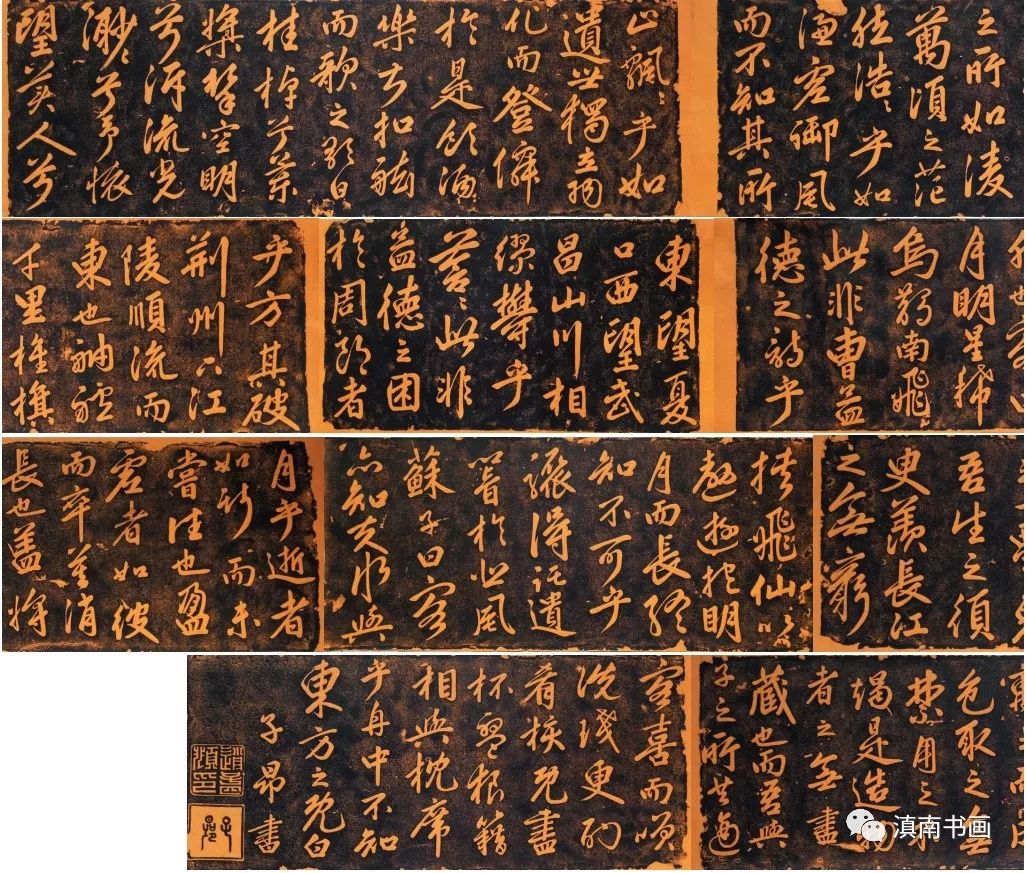 之所如凌
萬頃之茫
然浩〻乎如
馮虛御風
而不知其所
止飄〻乎如
遺世獨立羽
化而登僊
於是飲酒
樂甚扣舷
而歌之歌曰
桂棹兮蘭
槳擊空明
兮泝流光
渺〻兮予懷
望美人兮
月明星稀
烏鵲南飛
此非曹孟
德之詩乎
東望夏
口西望武
昌山川相
繆鬱乎
蒼〻此非
孟德之困
於周郎者
乎方其破
荊州下江
陵順流而
東也舳艫
千里旌旗
吾生之須
臾羨長江
之無窮
挾飛仙以
遨遊抱明
月而長終
知不可乎
驟得託遺
響於悲風
蘇子曰客
亦知夫水與
月乎逝者
如斯而未
嘗往也盈
虛者如彼
而卒莫消
長也蓋將
色取之無
禁用之不
竭是造物
者之無盡
藏也而吾與
子之所共適
客喜而笑
洗盞更酌
肴核既盡
杯盤狼籍
相與枕席
乎舟中不知
東方之既白
子昂書
趙孟頫印
子昂
滇南书画